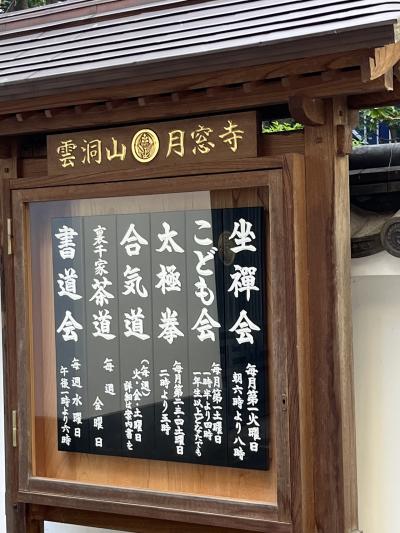 雲洞山 月窓寺
坐禪会
毎月第一火曜日
朝六時より八時
こども会
毎月第一土曜日
一時半より四時
一年生以上どなたでも
太極拳
毎月第二・三・四土曜日
二時より五時
合気道
(毎週)
火・金・土曜日
詳細は案内書を
裏千家茶道
毎週金曜日
書道会
毎週水曜日
午後一時より六時